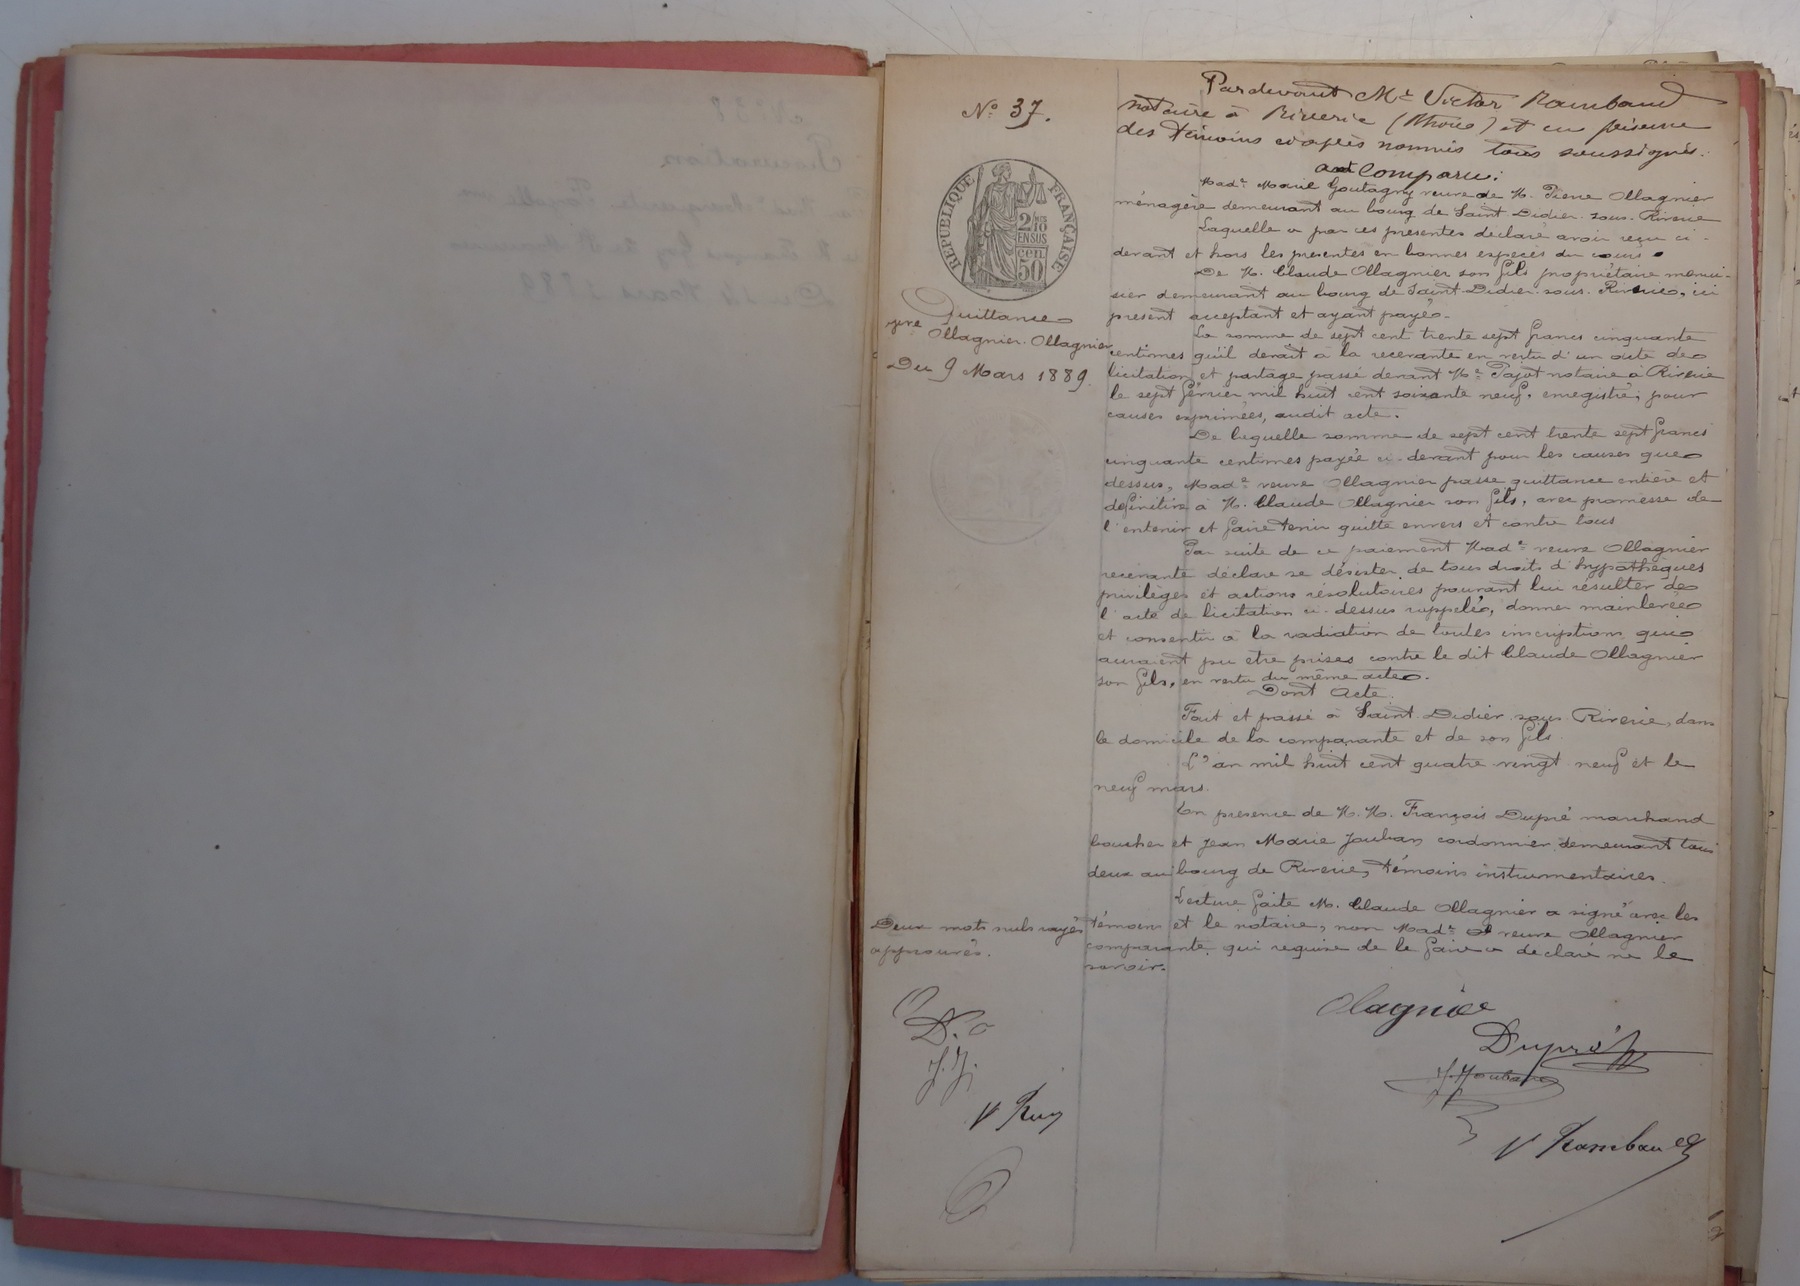 N° 37.
RÉPUBLIQUE FRANÇAISE
2/10 MES
EN SUS
cen.
50
Quittance
Ollagnier. Ollagnier
Du 9 Mars 1889.
Pardevant Me Victor Rambaud
notaire à Riverie (Rhône) et en présence
des témoins ciaprès nommés tous soussignés.
a Comparu:
Made Marie Goutagny veuve de M. Pierre Ollagnier
ménagère demeurant au bourg de Saint-Didier-sous-Riverie
Laquelle a par ces présentes déclaré avoir reçu ci-
devant et hors les présentes en bonnes espèces du cours
De M. Claude Ollagnier son fils propriétaire menui-
sier demeurant au bourg de Saint-Didier-sous-Riverie, ici
présent acceptant et ayant payé.
La somme de sept cent trente sept francs cinquante
centimes qu'il devait à la recevante en vertu d'un acte de
licitation et partage passé devant Me Pajot notaire à Riverie
le sept février mil huit cent soixante neuf, enregistré, pour
causes exprimées, audit acte.
De laquelle somme de sept cent trente sept francs
cinquante centimes payée ci-devant pour les causes que
dessus, Made veuve Ollagnier passe quittance entière et
définitive à M. Claude Ollagnier son fils, avec promesse de
l'entenir et faire tenir quitte envers et contre tous
Par suite de ce paiement Made veuve Ollagnier
recevante déclare se désister de tous droits d'hypothèques
privilèges et actions résolutoires pouvant lui résulter de
l'acte de licitation ci-dessus rappelé, donner mainlevée
et consentir à la radiation de toutes inscriptions qui
auraient pu etre prises contre le dit Claude Ollagnier
son fils, en vertu du même acte.
Dont Acte.
Fait et passé à Saint-Didier-sous-Riverie, dans
le domicile de la comparante et de son fils.
L'an mil huit cent quatre vingt neuf et le
neuf mars.
En présence de M. M. François Dupré marchand
boucher et Jean Marie Jouban cordonnier demeurant tous
deux au bourg de Riverie, témoins instrumentaires.
Lecture faite M. Claude Ollagnier a signé avec les
témoins et le notaire, non Made veuve Ollagnier
comparante qui requise de le faire a déclaré ne le
savoir.
Deux mots nuls rayés
approuvés.
Olagnier
Dupré
J. Jouban
V Rambaud
D.
J. J.
V Ram